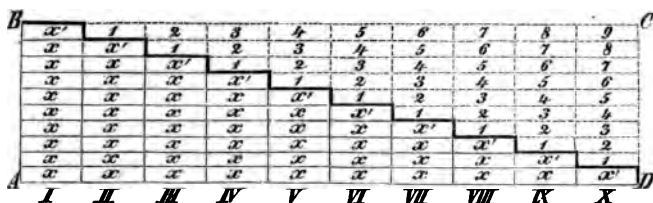 B x' 1 2 3 4 5 6 7 8 9 C
x x' 1 2 3 4 5 6 7 8
x x x' 1 2 3 4 5 6 7
x x x x' 1 2 3 4 5 6
x x x x x' 1 2 3 4 5
x x x x x x' 1 2 3 4
x x x x x x x' 1 2 3
x x x x x x x x' 1 2
x x x x x x x x x' 1
A x x x x x x x x x x' D
I II III IV V VI VII VIII IX X